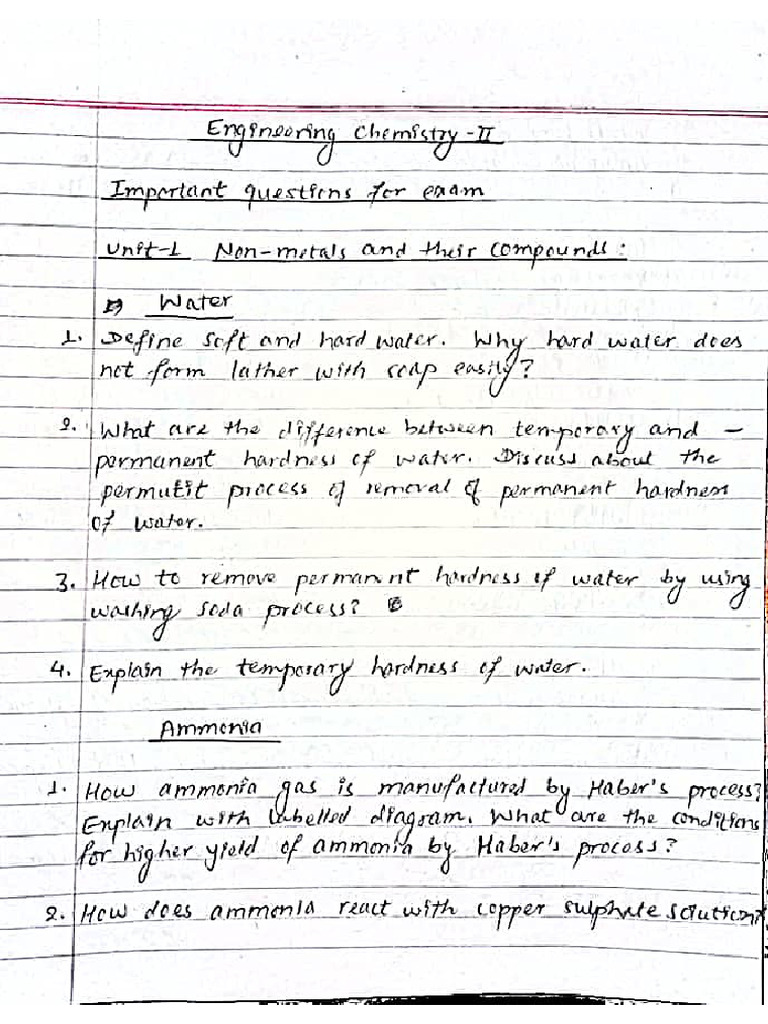 Engineering Chemistry-II
Important questions for exam
Unit-1 Non-metals and their compounds:
Water
1. Define soft and hard water. Why hard water does
not form lather with soap easily?
2. What are the difference between temporary and -
permanent hardness of water. Discuss about the
permutit process of removal of permanent hardness
of water.
3. How to remove permanent hardness of water by using
washing soda process?
4. Explain the temporary hardness of water.
Ammonia
1. How ammonia gas is manufactured by Haber's process?
Explain with labelled diagram. What are the conditions
for higher yield of ammonia by Haber's process?
2. How does ammonia react with copper sulphate solution?